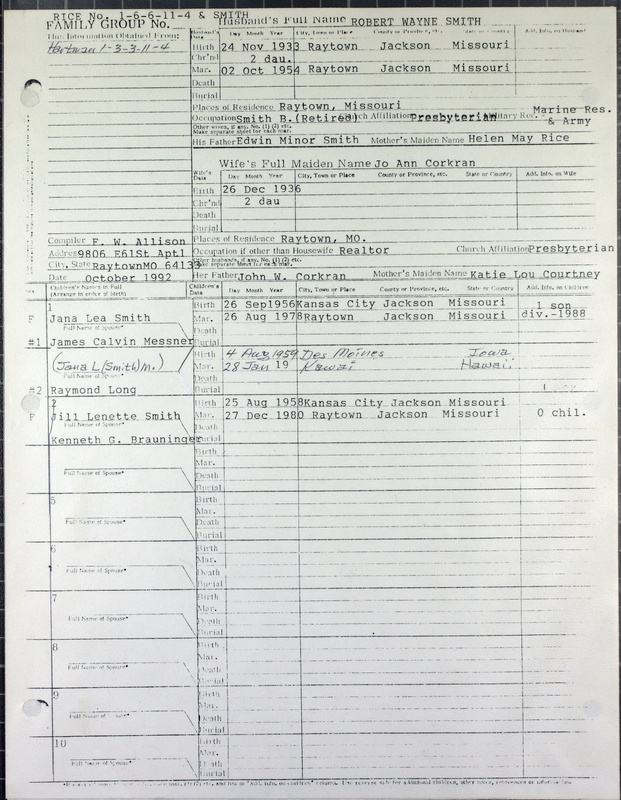 RICE No. 1-6-6-11-4 & SMITH
FAMILY GROUP No. Husband's Full Name ROBERT WAYNE SMITH
This Information Obtained From:
Hartman 1-3-3-11-4
Husband's Data Day Month Year City, Town or Place County or Province, etc. State or Country Add. Info. on Husband
Birth 24 Nov 1933 Raytown Jackson Missouri
Chr'nd 2 dau.
Mar. 02 Oct 1954 Raytown Jackson Missouri
Death
Burial
Places of Residence Raytown, Missouri
Occupation Smith B. (Retired) Church Affiliation Presbyterian Military Rec. Marine Res. & Army
Other wives, if any. No. (1) (2) etc.
Make separate sheet for each mar.
His Father Edwin Minor Smith Mother's Maiden Name Helen May Rice
Wife's Full Maiden Name Jo Ann Corkran
Wife's Data Day Month Year City, Town or Place County or Province, etc. State or Country Add. Info. on Wife
Birth 26 Dec 1936
Chr'nd 2 dau
Death
Burial
Compiler F. W. Allison Places of Residence Raytown, MO.
Address 9806 E61St Apt1 Occupation if other than Housewife Realtor Church Affiliation Presbyterian
City, State Raytown MO 64133 Other husbands, if any. No. (1) (2) etc.
Make separate sheet for each mar.
Date October 1992 Her Father John W. Corkran Mother's Maiden Name Katie Lou Courtney
Children's Names in Full
(Arrange in order of birth) Children's Data Day Month Year City, Town or Place County or Province, etc. State or Country Add. Info. on Children
1 Birth 26 Sep 1956 Kansas City Jackson Missouri 1 son
F Jana Lea Smith Mar. 26 Aug 1978 Raytown Jackson Missouri div.-1988
Full Name of Spouse* Death
#1 James Calvin Messner Burial
Birth 4 Aug 1959 Des Moines Iowa
(Jana L (Smith) M.) Mar. 28 Jan 19 Kawai Hawaii
Full Name of Spouse* Death
#2 Raymond Long Burial
2 Birth 25 Aug 1958 Kansas City Jackson Missouri
F Jill Lenette Smith Mar. 27 Dec 1980 Raytown Jackson Missouri 0 chil.
Full Name of Spouse* Death
Kenneth G. Brauninger Burial
Birth
Mar.
Full Name of Spouse* Death
Burial
5 Birth
Mar.
Full Name of Spouse* Death
Burial
6 Birth
Mar.
Full Name of Spouse* Death
Burial
7 Birth
Mar.
Full Name of Spouse* Death
Burial
8 Birth
Mar.
Full Name of Spouse* Death
Burial
9 Birth
Mar.
Full Name of Spouse* Death
Burial
10 Birth
Mar.
Full Name of Spouse* Death
Burial